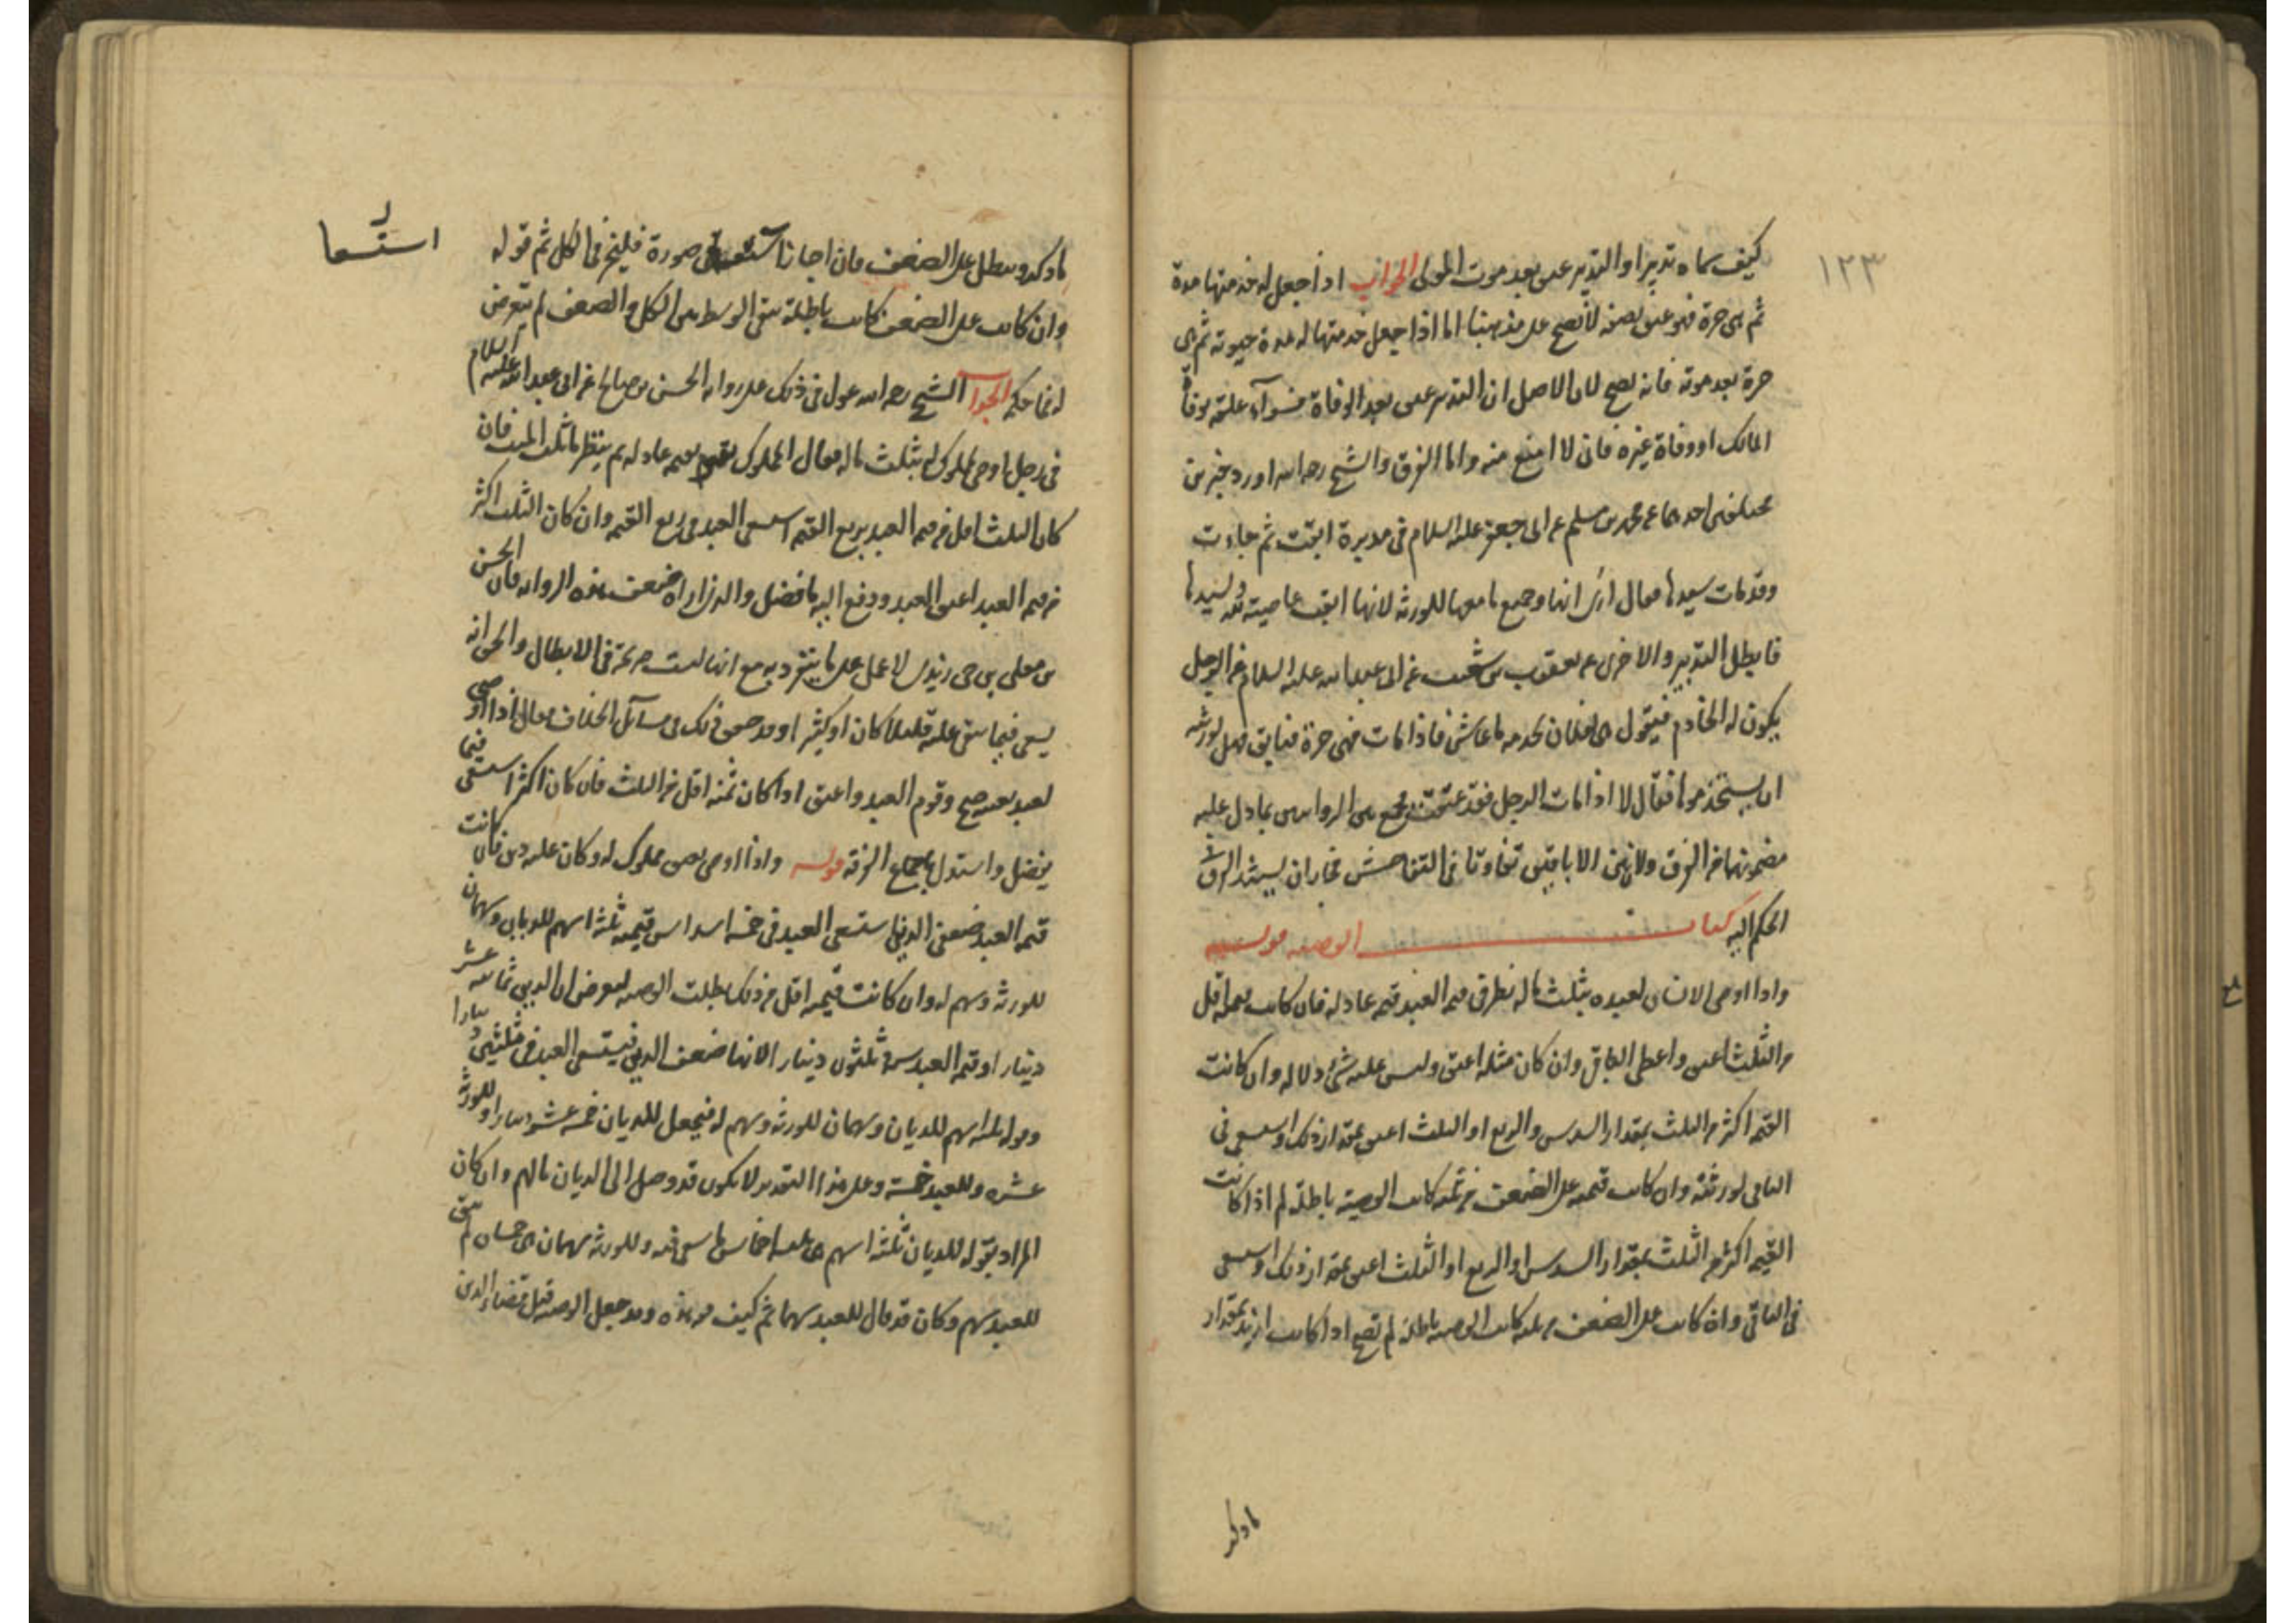 ١٢٣
كيف سماه تدبيرا والتدبير عتق بعد موت المولى الجواب اذا جعل له خدمتها مدة
ثم هى حرة فهو عتق بصفة لا يصح على مذهبنا اما اذا جعل خدمتها له مدة حيوته ثم هى
حرة بعد موته فانه يصح لان الاصل ان التدبير عتق بعد الوفاة فسوآء علقه بوفاة
المالك او وفاة غيره فان لا امنع منه واما الفرق والشيخ رحمه الله اورد خبرين
مختلفين احدهما عن محمد بن مسلم عن ابى جعفر عليه السلام فى مدبرة ابقت ثم جاءت
وقد مات سيدها فقال ارى انها وجميع ما معها للورثة لانها ابقت عاصية لله ولسيدها
فابطل التدبير والاخرى عن يعقوب بن شعيب عن ابى عبد الله عليه السلام عن الرجل
يكون له الخادم فيقول هى لفلان تخدمه ما عاش فاذا مات فهى حرة فتابق فهل لورثته
ان يستخدموها فقال لا اذا مات الرجل فقد عتقت فجمع بين الروايتين بما دل عليه
مضمونهما من الفرق ولان بين الاباقتين تفاوتا فى التفاحش فجاز ان يستند الفرق
الحكم اليه كتاب الوصية قوله
واذا اوصى الانسان لعبده بثلث ماله نظر فى قيمة العبد قيمة عادلة فان كانت قيمته اقل
من الثلث اعتق واعطى الباقى وان كان مثله اعتق وليس عليه شئ ولا له وان كانت
القيمة اكثر من الثلث بمقدار السدس والربع او الثلث اعتق بمقدار ذلك واستسعى فى
الباقى لورثته وان كانت قيمته على الضعف من ثلثه كانت الوصية باطلة لم اذا كانت
القيمة اكثر من الثلث بمقدار السدس او الربع او الثلث اعتق بمقدار ذلك واستسعى
فى الباقى وان كانت على الضعف من ثلثه كانت الوصية باطلة لم تصح اذا كانت ازيد بمقدار
ماذكر
ماذكر وتبطل على الضعف فان اجازنا فى صورة فليجز فى الكل ثم قوله
استسعا
وان كانت على الضعف كانت باطلة بقى الوسط بين الكل والضعف لم يتعرض
له فما حكمه الجواب الشيخ رحمه الله عول فى ذلك على رواية الحسن بن صالح عن ابى عبد الله عليه السلام
فى رجل اوصى لمملوك له بثلث ماله فقال المملوك بقيمة عادلة ثم ينظر ما ثلث الميت فان
كان الثلث اقل من قيمة العبد بربع القيمة استسعى العبد فى ربع القيمة وان كان الثلث اكثر
من قيمة العبد اعتق العبد ودفع اليه ما فضل والذى اراه ضعف هذه الرواية فان الحسن
بن صالح بن حى زيدى لا عمل على ما يتفرد به مع انها ليست صريحة فى الابطال والحق انه
يسعى فيما بقى عليه قليلا كان او كثيرا وقد صحح ذلك فى مسائل الخلاف فقال اذا اوصى
لعبد نفسه صح وقوم العبد واعتق اذا كان ثمنه اقل من الثلث فان كان اكثر استسعى فيما
يفضل واستدل باجماع الفرقة قوله واذا اوصى بعتق مملوك له وكان عليه دين فان كانت
قيمة العبد ضعفى الدين استسعى العبد فى خمسة اسداس قيمته ثلثة اسهم للديان وسهمان
للورثة وسهم له وان كانت قيمته اقل من ذلك بطلت الوصية ليفرض ان الدين ثمانية عشر
دينارا وقيمة العبد ستة وثلثون دينارا لانها ضعف الدين فيستسعى العبد فى ثلثين دينارا
وقوله ثلثة اسهم للديان وسهمان للورثة وسهم له فيجعل للديان خمسة عشر دينارا وللورثة
عشرة وللعبد خمسة وعلى هذا التقدير لا يكون قد وصل الى الديان مالهم وان كان
المراد بقوله للديان ثلثة اسهم هى ثلثة اخماس ما سعى فيه وللورثة سهمان هى خمسان لم يبق
للعبد سهم وكان قد قال للعبد سهما ثم كيف هذه وقد جعل الوصية قبل قضاء الدين